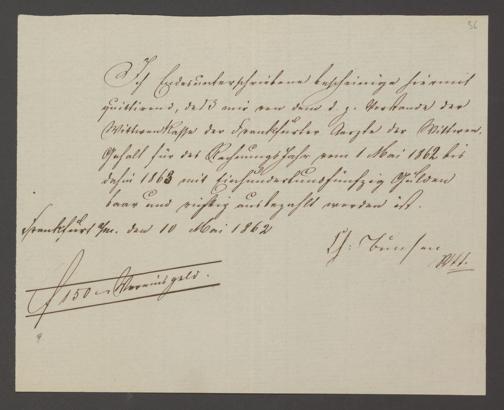 36
Ich Endesunterschriebene bescheinige hiermit
quittirend, daß mir von dem d. z. Vorstande der
Wittwenkasse der Frankfurter Aerzte der Wittwen-
Gehalt für das Rechnungs Jahr vom 1 Mai 1862 bis
dahin 1863 mit Einhundertundfünfzig Gulden
baar und richtig ausbezahlt worden ist.
Frankfurt a/m. den 10 Mai 1862
Ch: Bunsen
Wtt.
f 150 Vereinsgeld.